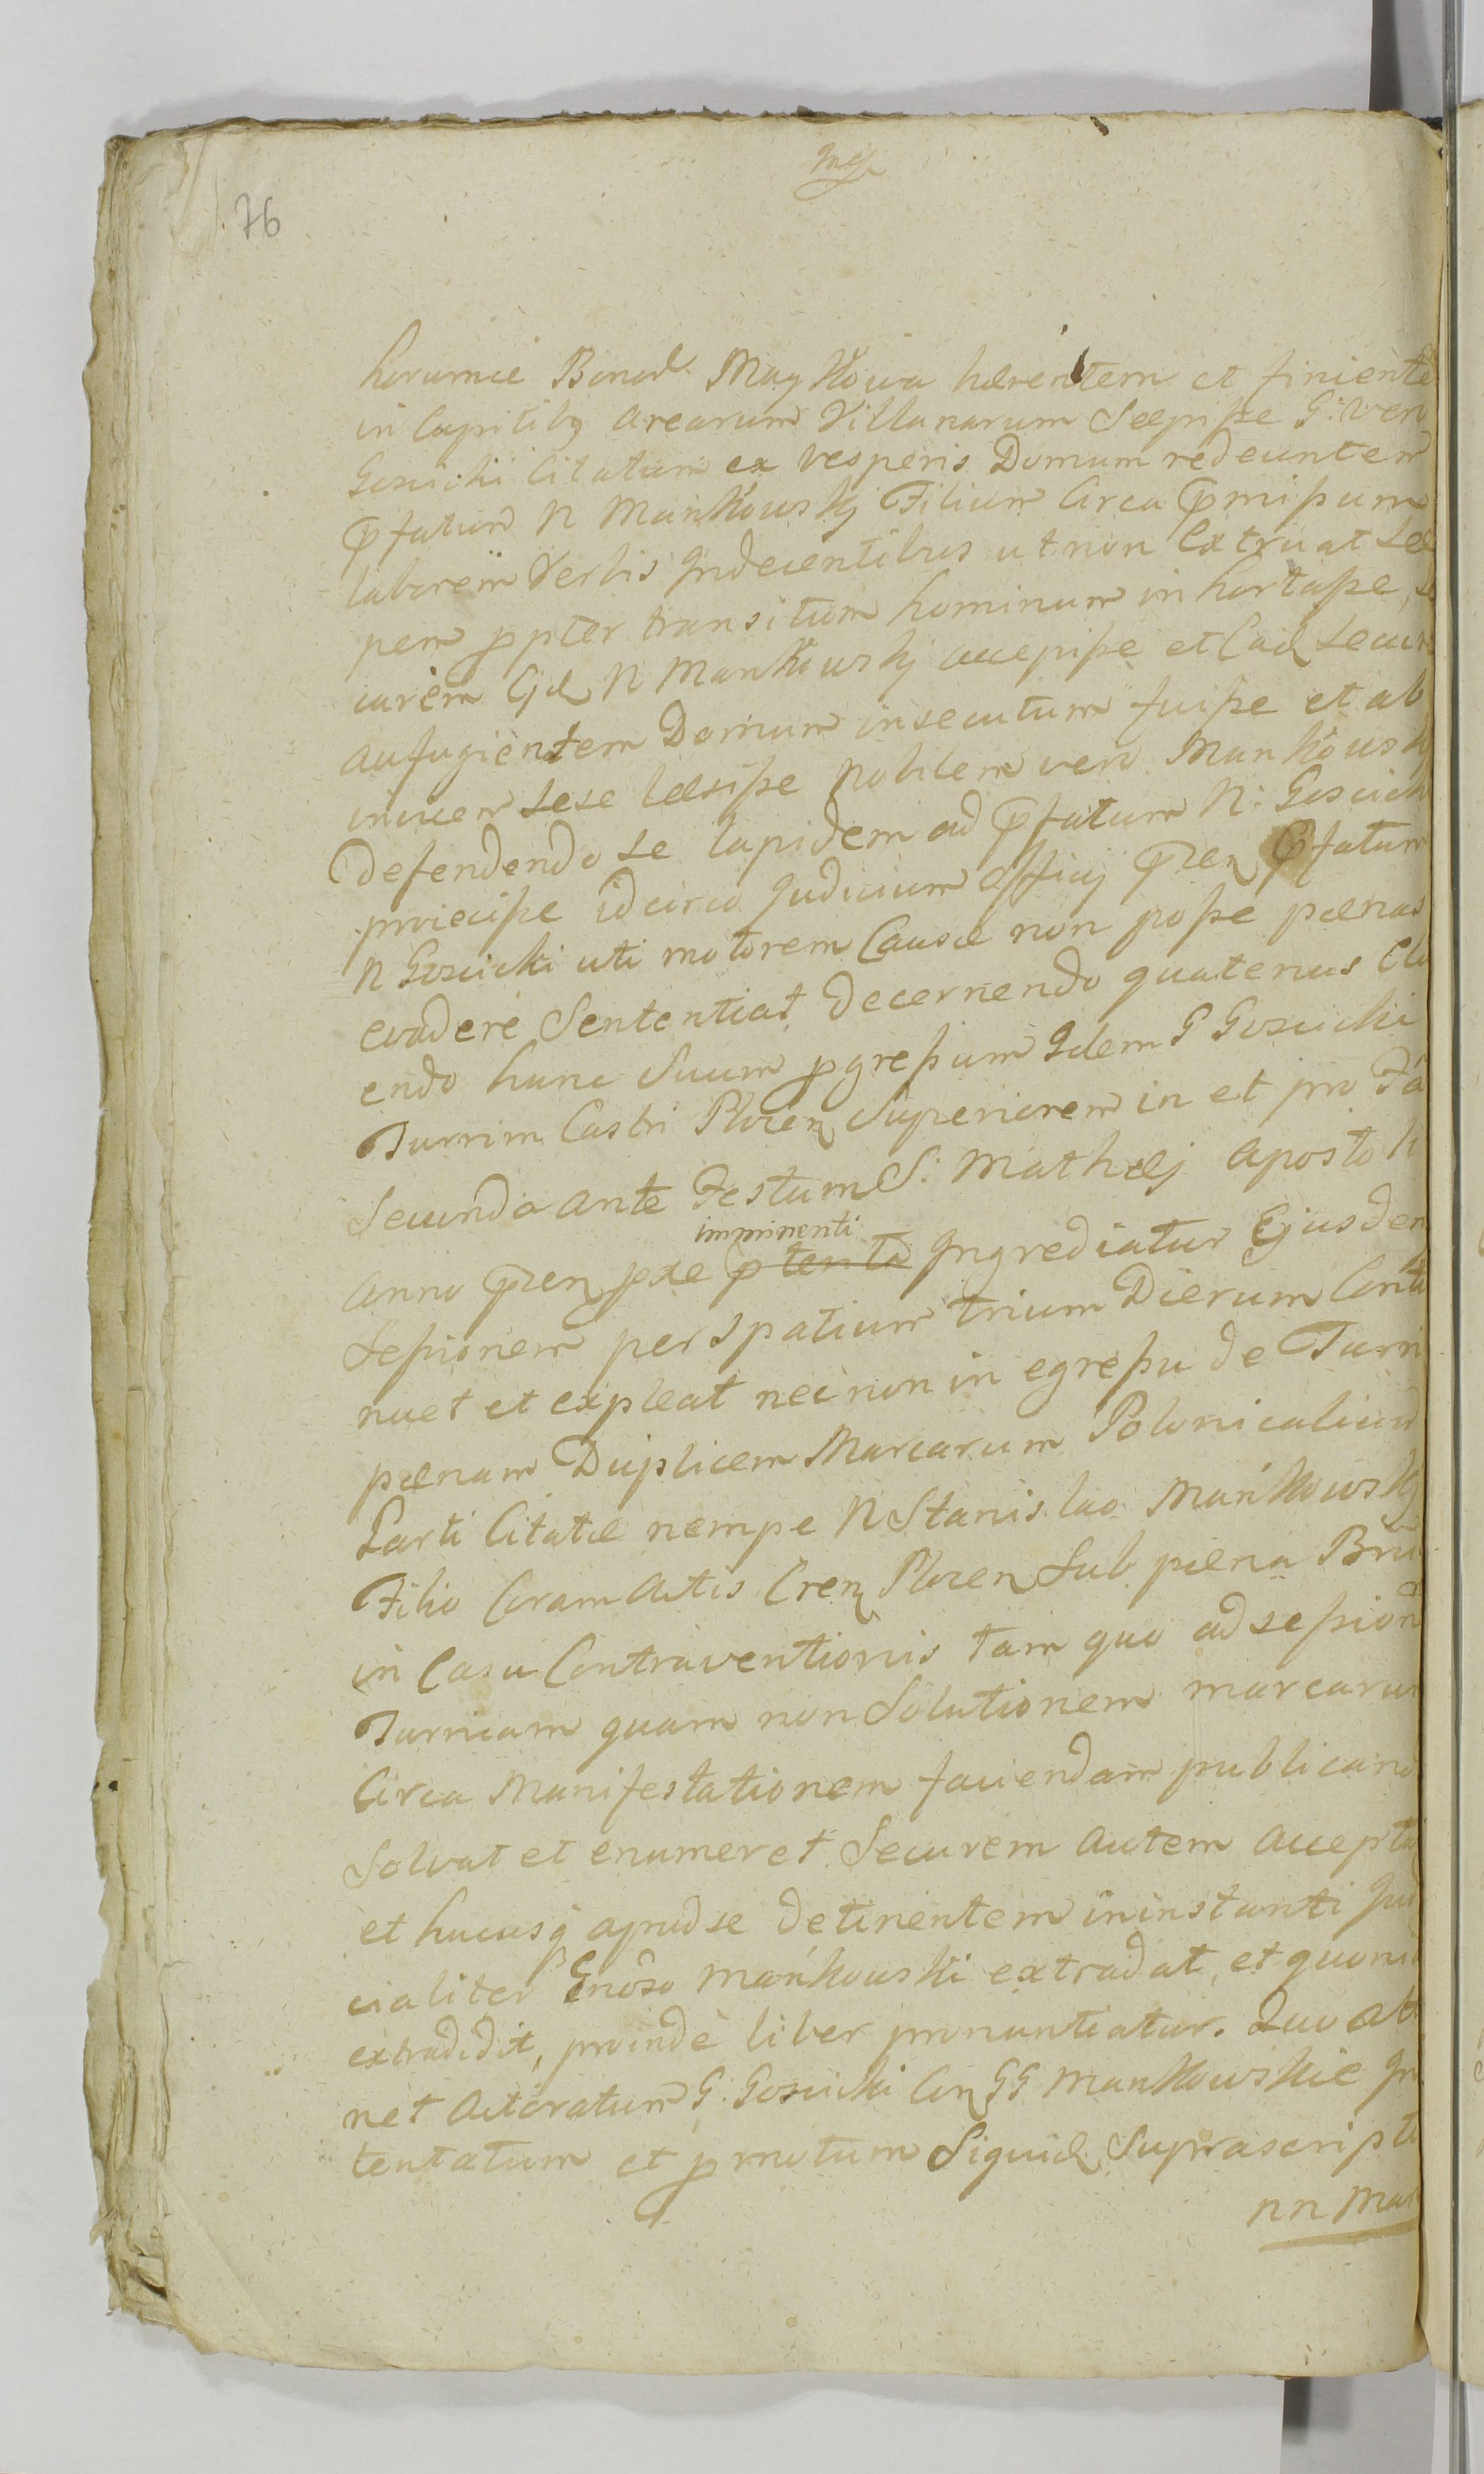 76
horumce Bonor Maykowa hærentem et finiente
in Capitibq Arearum Villanarum Sæpiſse G: ven
Goscicki Citatum ex vesperis Domum redeuntem
p̄fatum N Mańkowskj Filium Circa p̄miſsum
laborem Verbis Indecentibus ut non Extruat Sæ
pem ppter transitum hominum inhortaſse, se
curem Ejd N Mańkowskj accepiſse et Cad Secure
aufugientem Domum insecutum fuiſse et ab
invicem sese læsiſse Nobilem vero Mańkowskj
defendendo se lapidem ad p̄fatum N: Goscicki
proieciſse idcirco Judicium Officij p̄ƶen p̄fatum
N Goscicki uti motorem Causæ non poſse pænas
evadere Sententiat, Decernendo quatenus Clu
endo hunc Suum pgreſsum Idem G Goscicki
Turrim Castri Plocen Superiorem in et pro Fa
Secunda ante Festum S: Mathæj Apostoli
imminenti
Anno p̄ƶen pxe p tenta Ingrediatur Ejusdem
Seſsionem per spatium trium Dierum Conti
nuet et expleat nec non in egreſsu de Turri
pænam Duplicem Marcarum Polonicalium
Parti Citatæ nempe N Stanislao Mańkowskj
Filio Coram Actis Cren Plocen Sub pæna Bni
in Casu Contraventionis tam quo ad seſsion
Turrieam quam non Solutionem marcarum
Circa Manifestationem faciendam publicand
Solvat et enumeret Securem autem accepta
et hucusq apud se detinentem in instanti Judi
cialiter Gnoso Mańkowski extradat, et quoni
extradidit, proinde liber pronuntiatur. Quo Atti
net Actoratum G: Goscicki Con GG Mańkowskie In
tentatum et pmotum Siquid Suprascripti
nn Mań